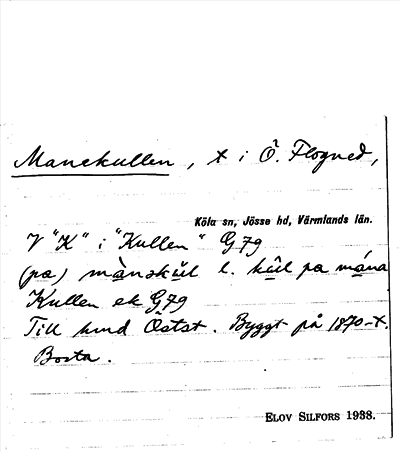 Manekullen, t i Ö. Flogned,
Köla sn, Jösse hd, Värmlands län.
V "K" i "Kullen" G79
(pa) mànskúl l. kúl pa mána
Kullen ek G79
Till hmd Östst. Byggt på 1870-t.
Borta.
ELOV SILFORS 1938.